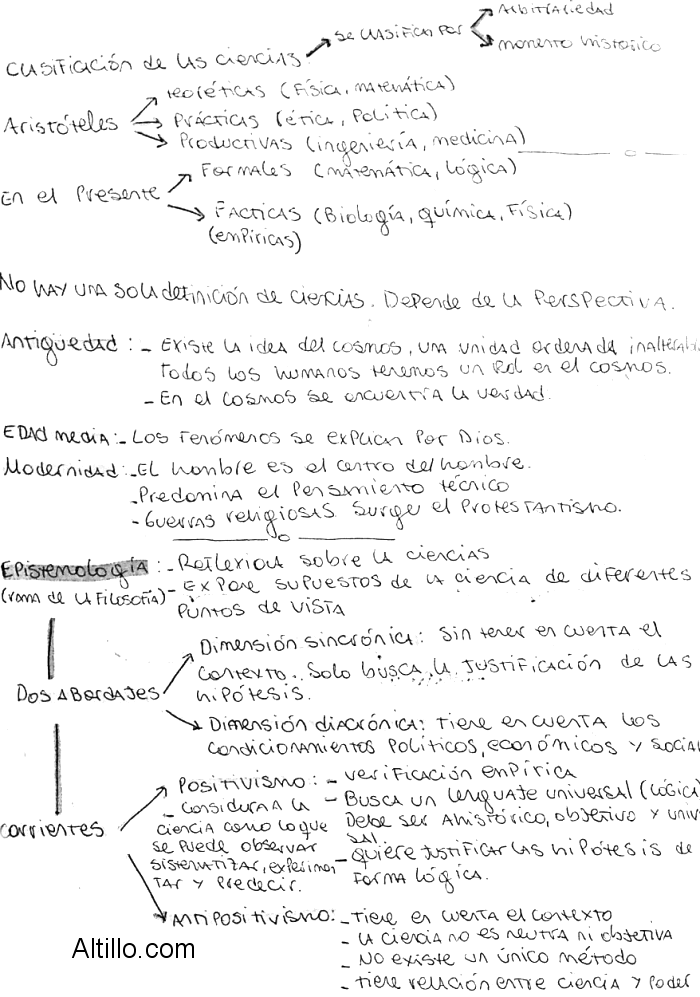 Clasificación de las ciencias → se clasifican por → Arbitrariedad
→ momento historico
Aristóteles → teoréticas (Física, matemática)
→ Prácticas (ética, Política)
→ Productivas (ingeniería, medicina)
En el Presente → Formales (matemática, lógica)
→ Facticas (Biología, química, Física)
(empíricas)
No hay una sola definición de ciencias. Depende de la Perspectiva.
Antiguedad: - Existe la idea del cosmos, una unidad ordenada inalterabl
todos los humanos tenemos un Rol en el cosmos.
- En el cosmos se encuentra la verdad.
EDAD media: - Los Fenómenos se explican Por Dios.
Modernidad: - El hombre es el centro del hombre.
- Predomina el Pensamiento técnico
- Guerras religiosas surge el Protestantismo.
Epistemología: - Reflexiona sobre la ciencias
(rama de la Filosofía) - Expone supuestos de la ciencia de diferentes
Puntos de vista
Dos Abordajes → Dimensión sincrónica: Sin tener en cuenta el
contexto. Solo busca la Justificación de las
hipótesis.
→ Dimensión diacrónica: tiene en cuenta los
condicionamientos Políticos, económicos y social
corrientes → Positivismo: - verificación empírica
- consideran la
ciencia como lo que
se puede observar
sistematizar, experimen
tar y Predecir.
- Busca un lenguaje universal (lógica)
Debe ser Ahistórico, objetivo y univer
sal.
- quiere justificar las hipótesis de
forma lógica.
→ Antipositivismo: - tiene en cuenta el contexto
- la ciencia no es neutra ni objetiva
- No existe un único método
- tiene relación entre ciencia y Poder
Altillo.com